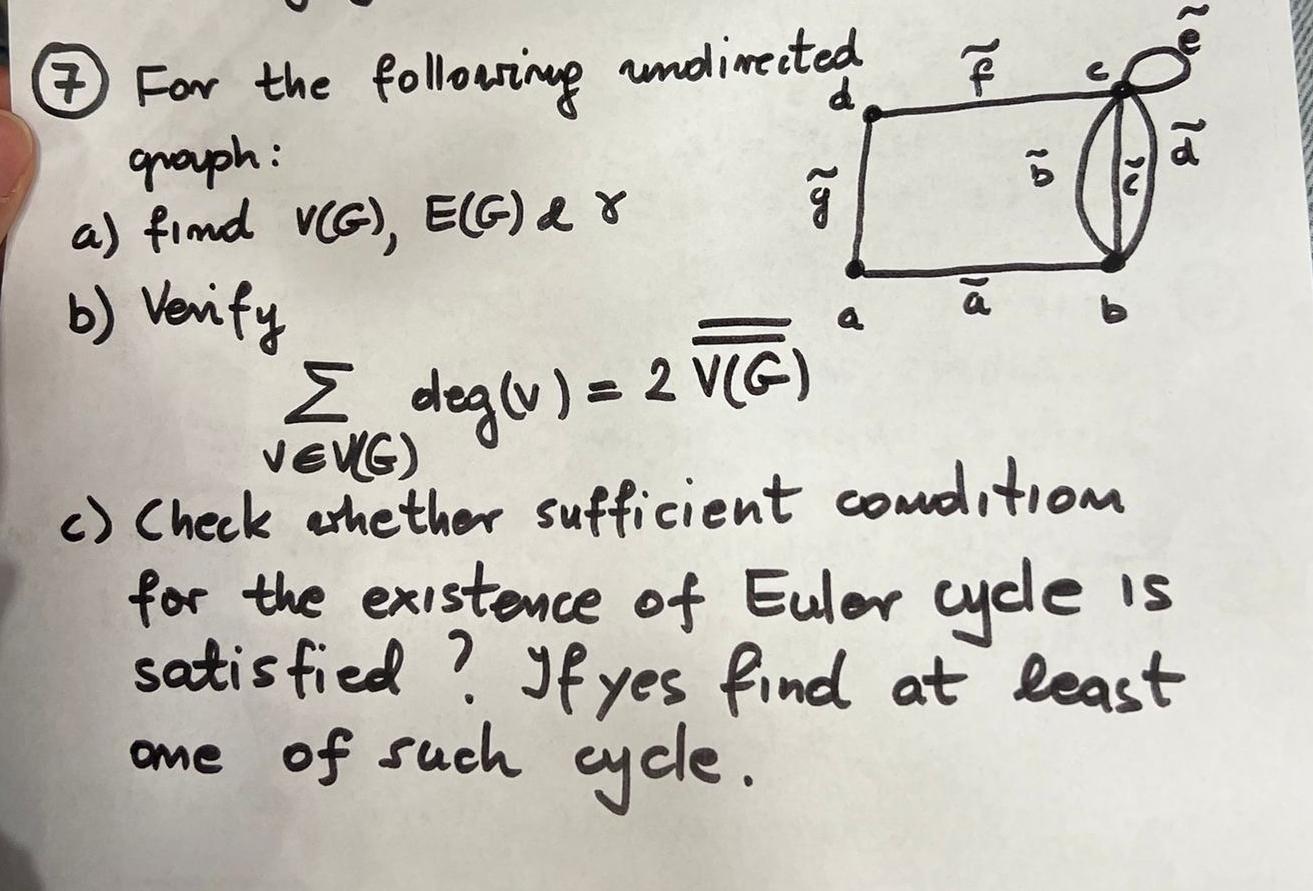 ⑦ For the following undirected
graph:
a) find V(G), E(G) & γ
b) Verify
Σ deg(v) = 2 \overline{\overline{V(G)}}
v∈V(G)
c) Check whether sufficient condition
for the existence of Euler cycle is
satisfied? If yes find at least
one of such cycle.
ẽ
d f̃ c
g̃ b̃ c̃ d̃
a ã b